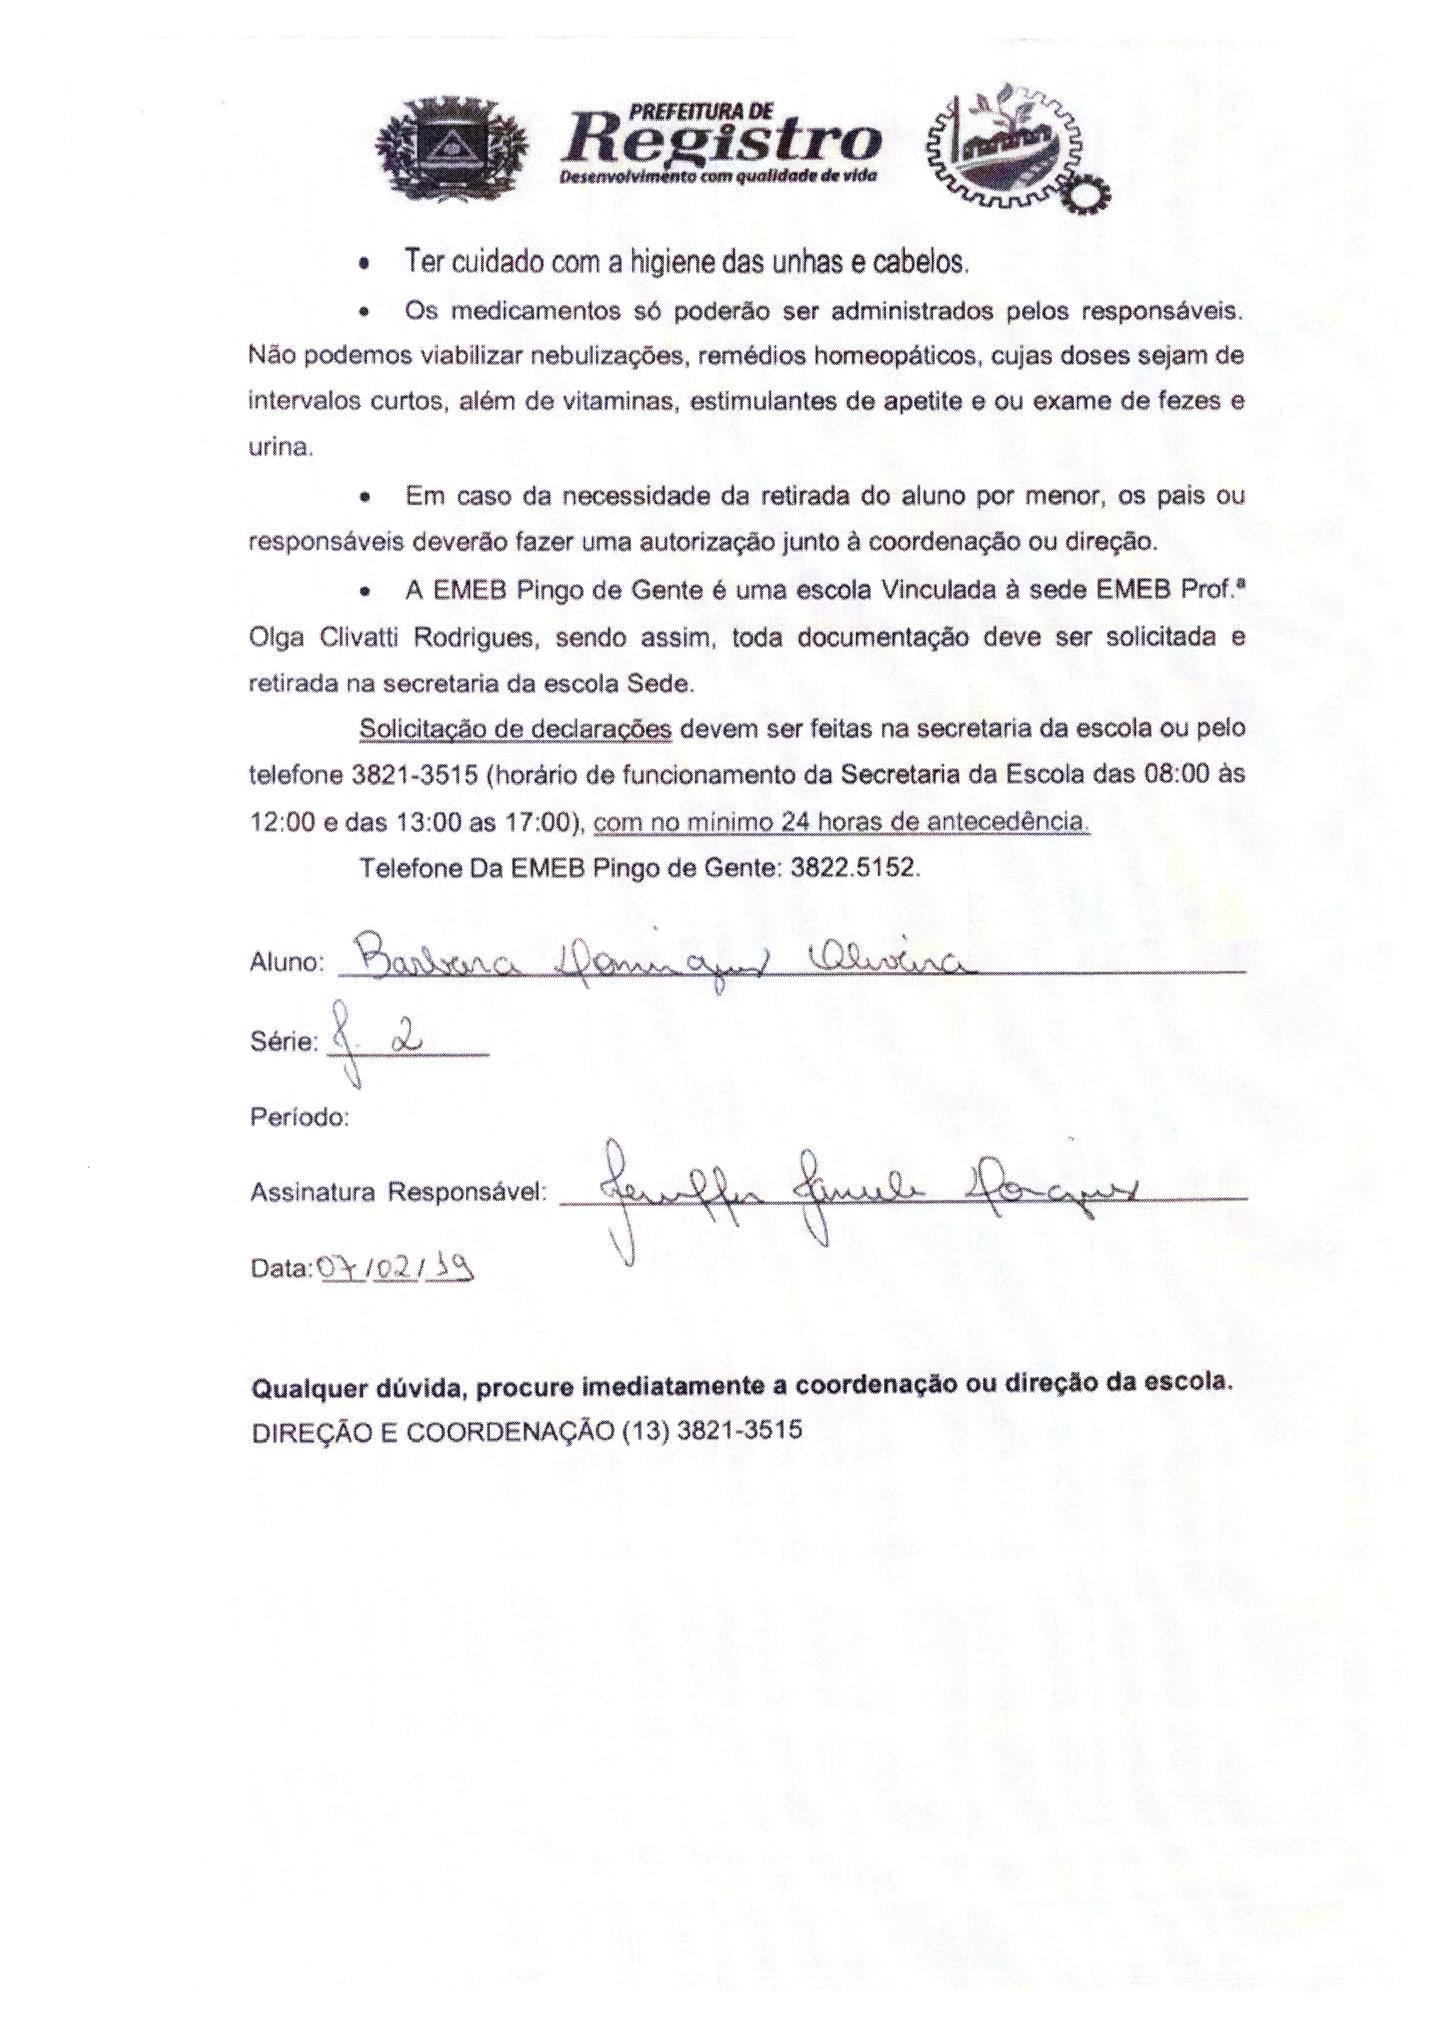 PREFEITURA DE
Registro
Desenvolvimento com qualidade de vida
• Ter cuidado com a higiene das unhas e cabelos.
• Os medicamentos só poderão ser administrados pelos responsáveis.
Não podemos viabilizar nebulizações, remédios homeopáticos, cujas doses sejam de
intervalos curtos, além de vitaminas, estimulantes de apetite e ou exame de fezes e
urina.
• Em caso da necessidade da retirada do aluno por menor, os pais ou
responsáveis deverão fazer uma autorização junto à coordenação ou direção.
• A EMEB Pingo de Gente é uma escola Vinculada à sede EMEB Prof.ª
Olga Clivatti Rodrigues, sendo assim, toda documentação deve ser solicitada e
retirada na secretaria da escola Sede.
Solicitação de declarações devem ser feitas na secretaria da escola ou pelo
telefone 3821-3515 (horário de funcionamento da Secretaria da Escola das 08:00 às
12:00 e das 13:00 as 17:00), com no mínimo 24 horas de antecedência.
Telefone Da EMEB Pingo de Gente: 3822.5152.
Aluno: Barbara Oliveira
Série: 2
Período:
Assinatura Responsável:
Data: 07/02/19
Qualquer dúvida, procure imediatamente a coordenação ou direção da escola.
DIREÇÃO E COORDENAÇÃO (13) 3821-3515